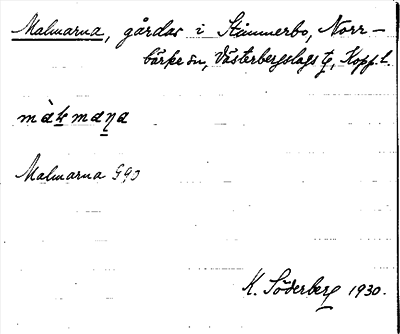 Malmarna, gårdar i Stimmerbo, Norr-
bärke sn, Västerbergslags tg, Kopp. l.
Malmarna G90
K. Söderberg 1930.